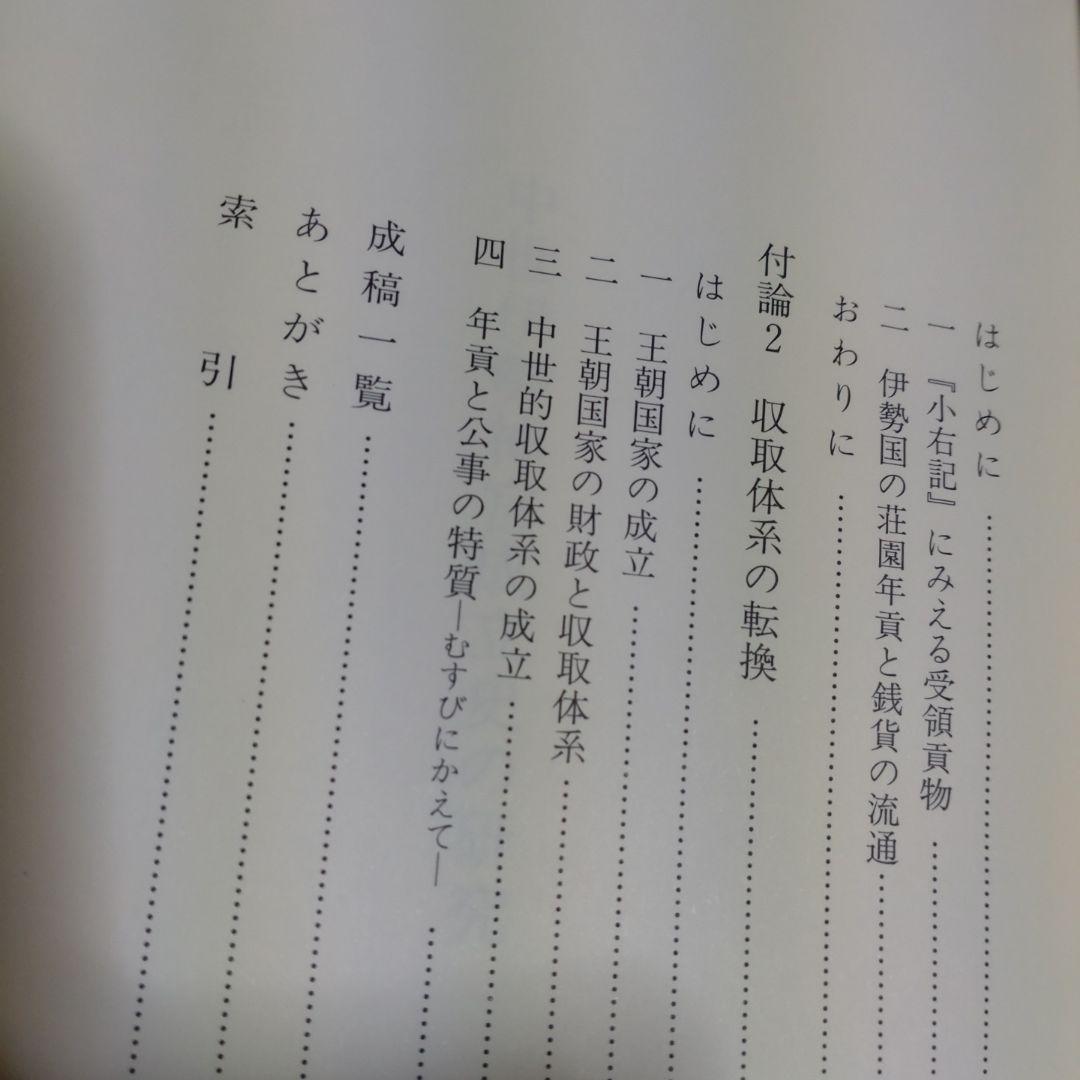 はじめに
一 『小右記』にみえる受領貢物
二 伊勢国の荘園年貢と銭貨の流通
おわりに
付論2 収取体系の転換
はじめに
一 王朝国家の成立
二 王朝国家の財政と収取体系
三 中世的収取体系の成立
四 年貢と公事の特質―むすびにかえて―
成稿一覧
あとがき
索引